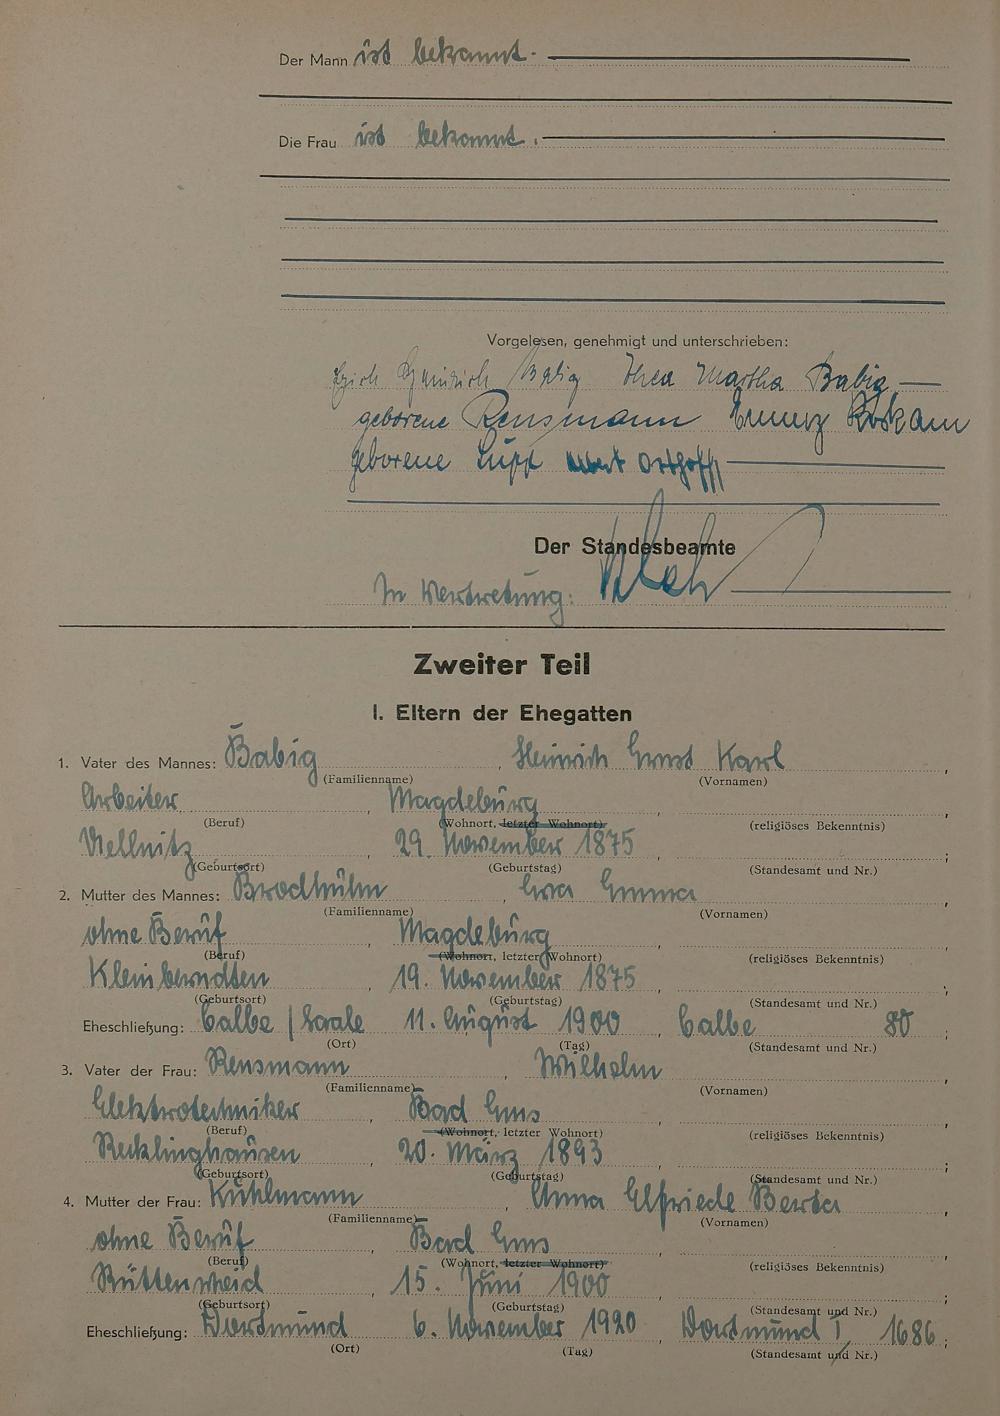 Der Mann ist bekannt.
Die Frau ist bekannt.
Vorgelesen, genehmigt und unterschrieben:
Erich Heinrich Babig Thea Martha Babig
geborene Rensmann Roskam
geborene Orthoff
Der Standesbeamte
In Vertretung:
Zweiter Teil
I. Eltern der Ehegatten
1. Vater des Mannes: Babig, Heinrich Ernst Karl,
(Familienname) (Vornamen)
Arbeiter, Magdeburg,
(Beruf) (Wohnort, letzter Wohnort) (religiöses Bekenntnis)
29. November 1875, ;
(Geburtsort) (Geburtstag) (Standesamt und Nr.)
2. Mutter des Mannes: Emma,
(Familienname) (Vornamen)
ohne Beruf, Magdeburg,
(Beruf) (Wohnort, letzter Wohnort) (religiöses Bekenntnis)
Kleinberndten, 19. November 1875, ;
(Geburtsort) (Geburtstag) (Standesamt und Nr.)
Eheschließung: Calbe / Saale 11. August 1900, Calbe 80;
(Ort) (Tag) (Standesamt und Nr.)
3. Vater der Frau: Rensmann, Wilhelm,
(Familienname) (Vornamen)
Elektrotechniker, Bad Ems,
(Beruf) (Wohnort, letzter Wohnort) (religiöses Bekenntnis)
Recklinghausen, 20. März 1893, ;
(Geburtsort) (Geburtstag) (Standesamt und Nr.)
4. Mutter der Frau: Kuhlmann, Anna Elfriede Berta,
(Familienname) (Vornamen)
ohne Beruf, Bad Ems,
(Beruf) (Wohnort, letzter Wohnort) (religiöses Bekenntnis)
Rüttenscheid, 15. Juni 1900, ;
(Geburtsort) (Geburtstag) (Standesamt und Nr.)
Eheschließung: Dortmund 6. November 1920, Dortmund I, 1686;
(Ort) (Tag) (Standesamt und Nr.)